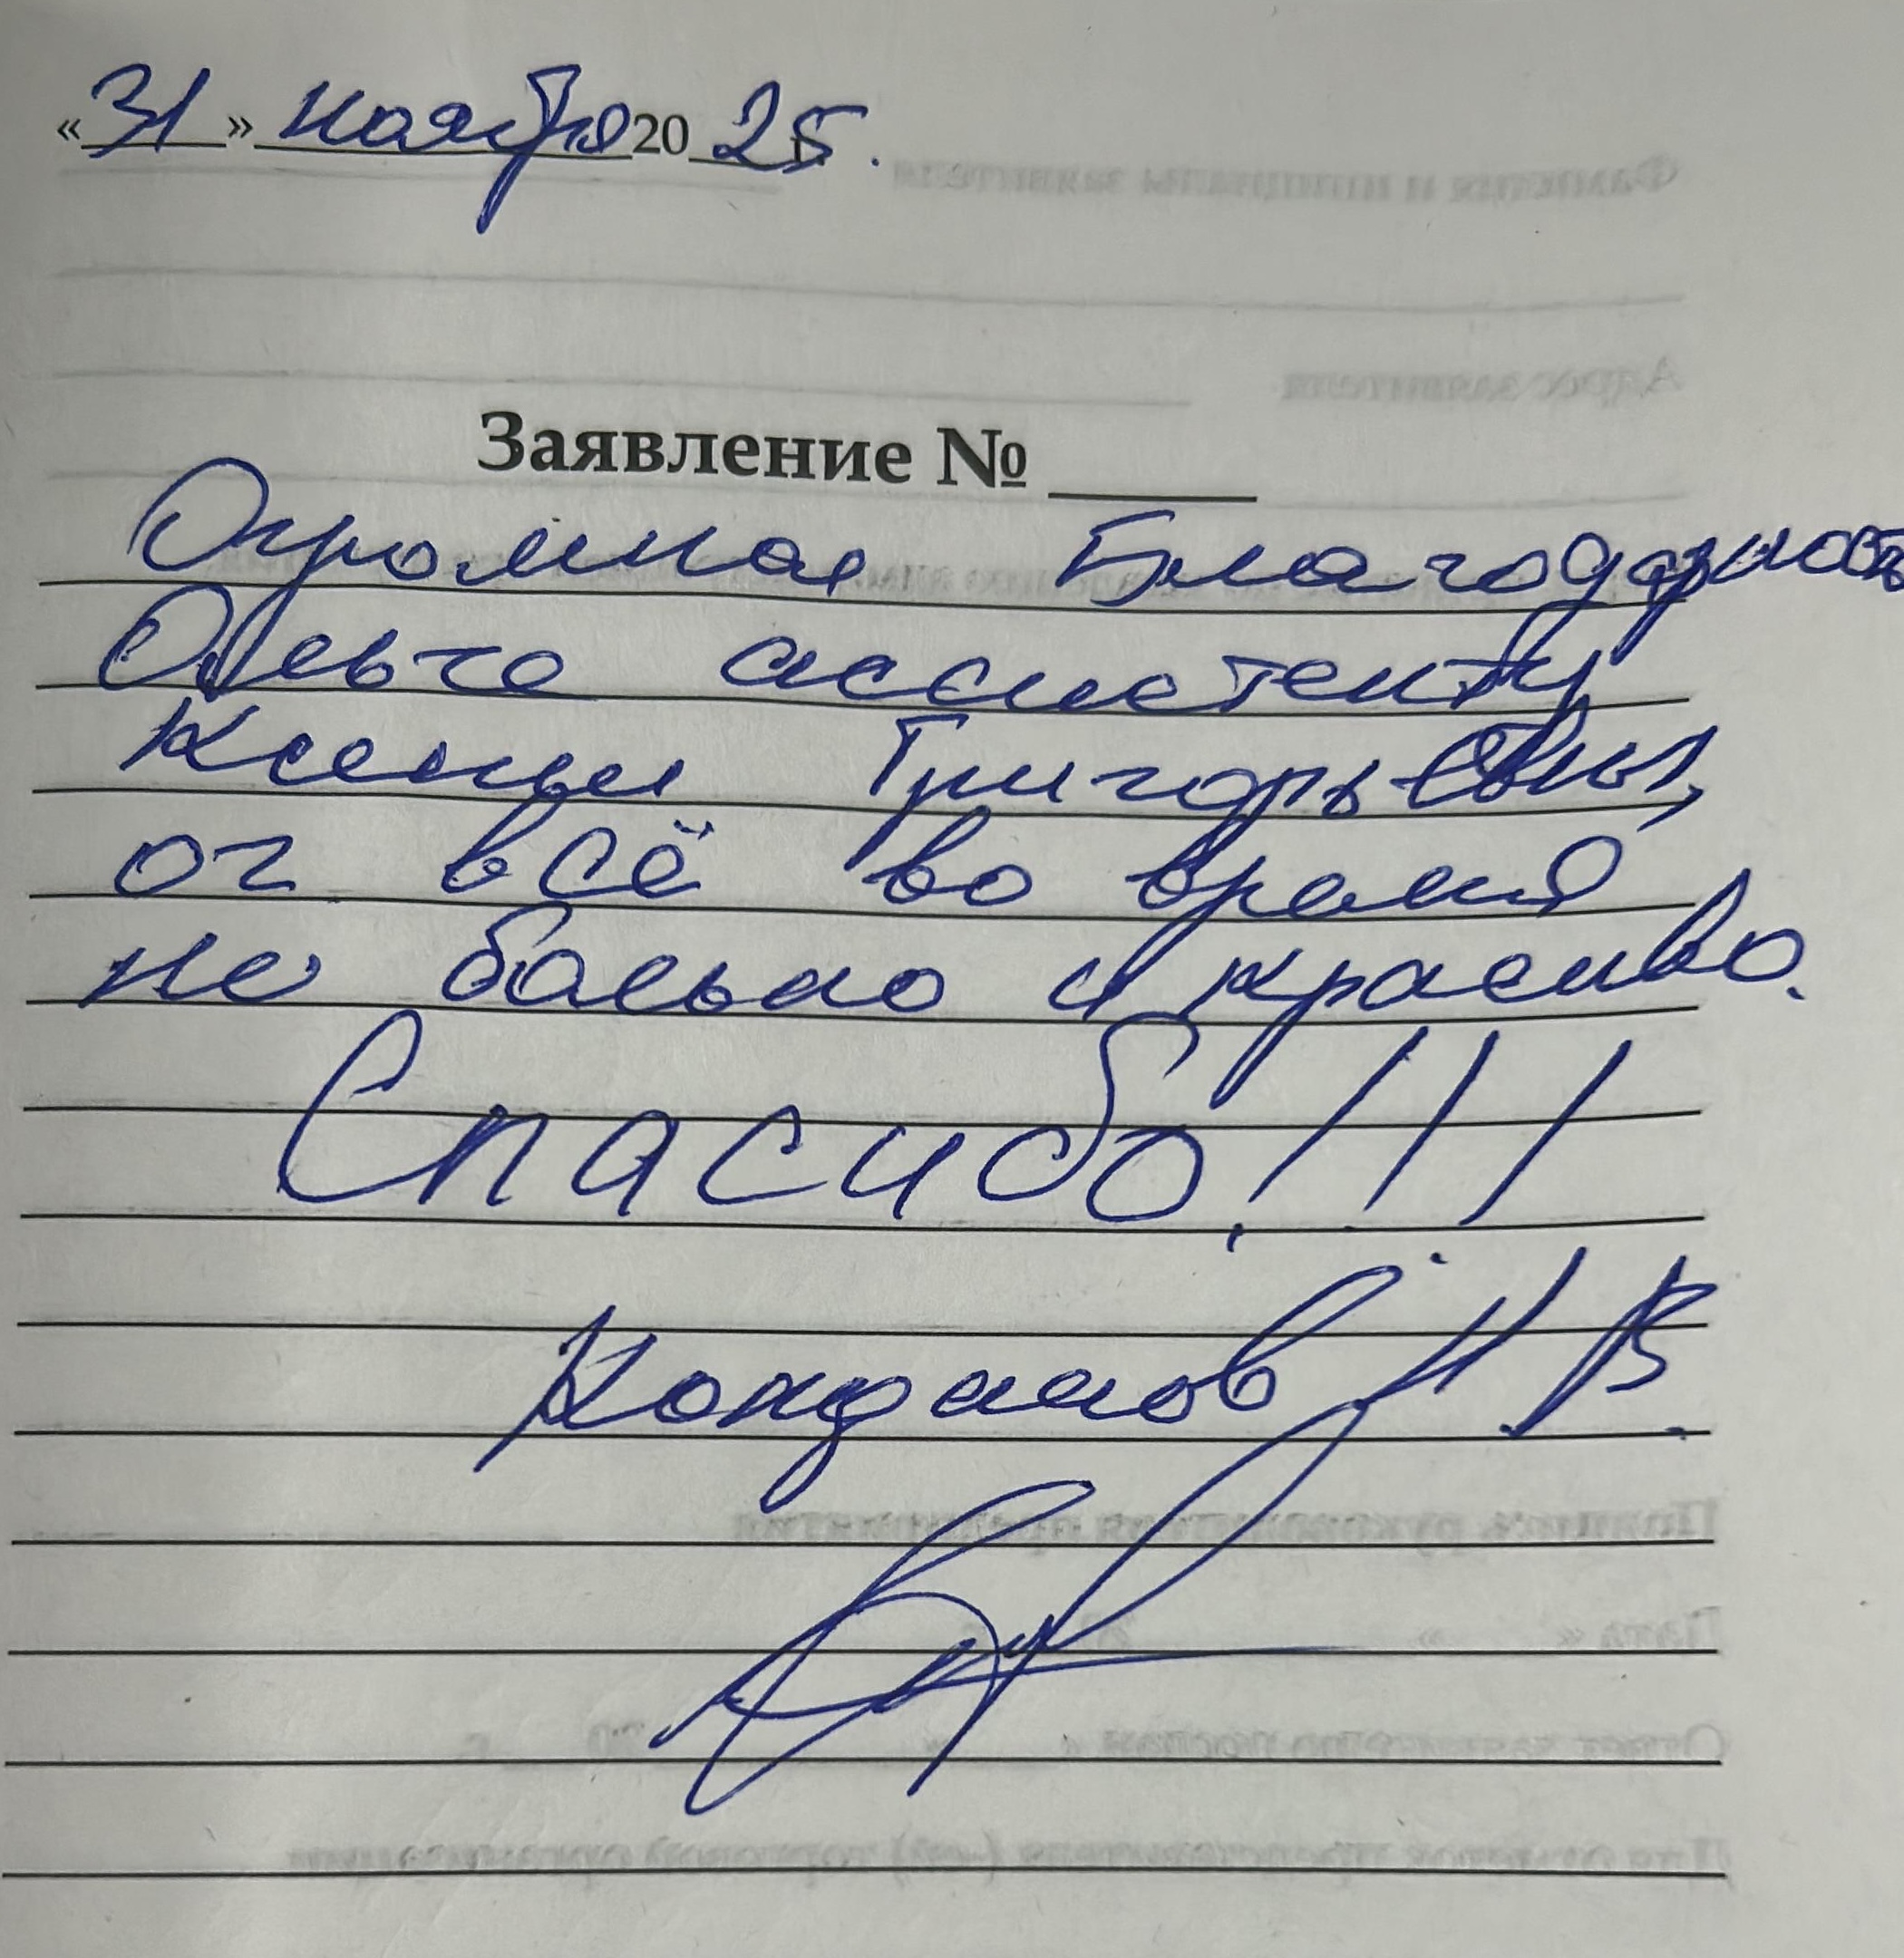 «31» ноября 2025.
Заявление № ____
Огромная Благодарность
Ольге ассистенту
Ксеньи Григорьевны,
ог всё во время
не больно и красиво.
Спасибо!!!
Н В.